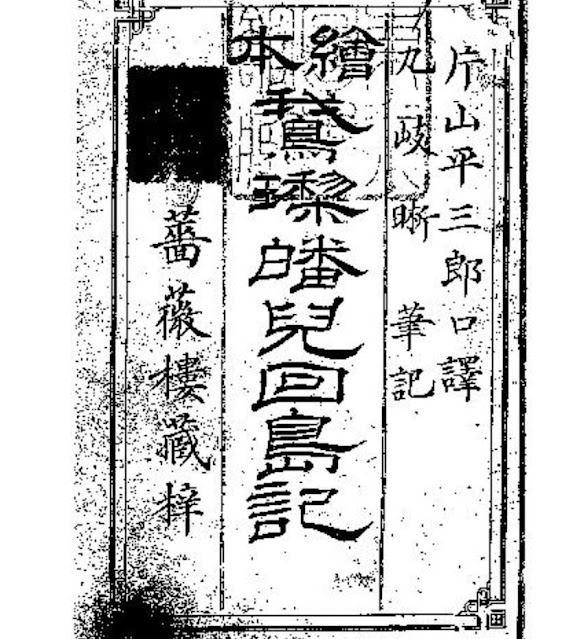 片山平三郎口譯
九岐晰 筆記
繪本
鵞瓈皤兒回島記
薔薇樓藏梓